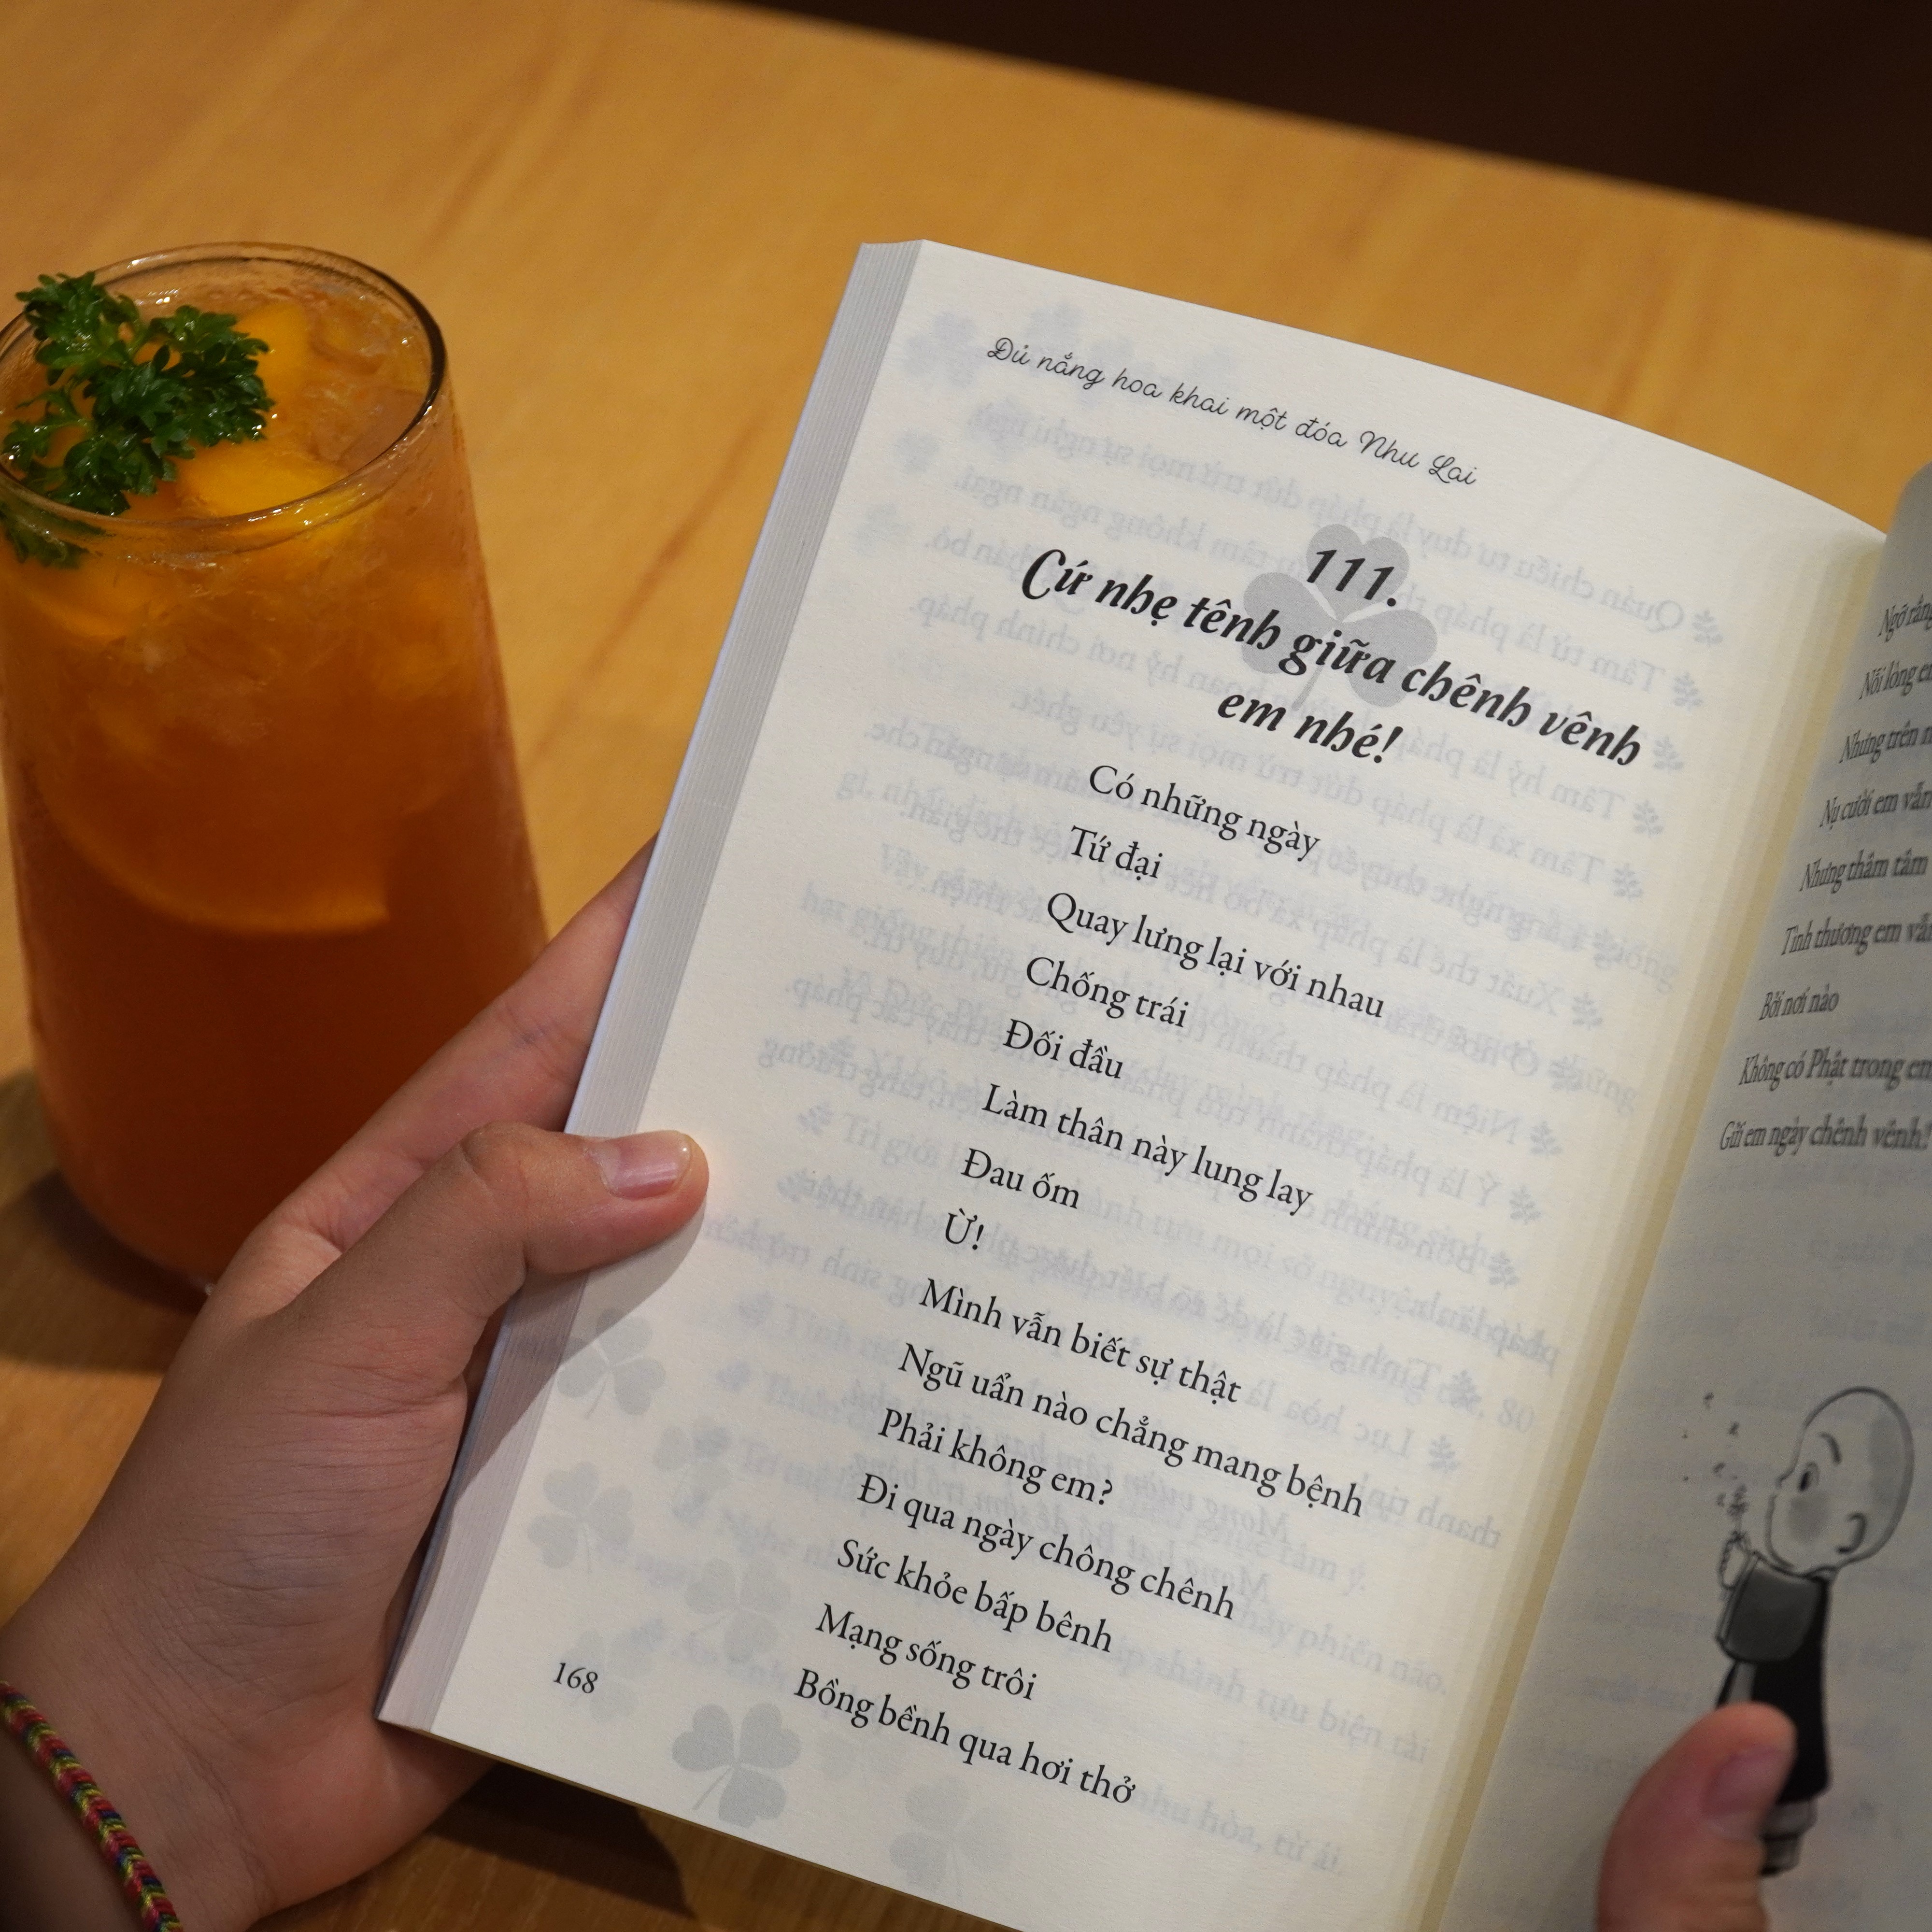 Đủ nắng hoa khai một đóa Như Lai
111.
Cứ nhẹ tênh giữa chênh vênh
em nhé!
Có những ngày
Tứ đại
Quay lưng lại với nhau
Chống trái
Đối đầu
Làm thân này lung lay
Đau ốm
Ừ!
Mình vẫn biết sự thật
Ngũ uẩn nào chẳng mang bệnh
Phải không em?
Đi qua ngày chông chênh
Sức khỏe bấp bênh
Mạng sống trôi
Bồng bềnh qua hơi thở
168
Ngỡ rằng
Nỗi lòng
Nhưng trên
Nụ cười em vẫn
Nhưng thâm tâm
Tình thương em vẫn
Bởi nơi nào
Không có Phật trong em
Gửi em ngày chênh vênh!